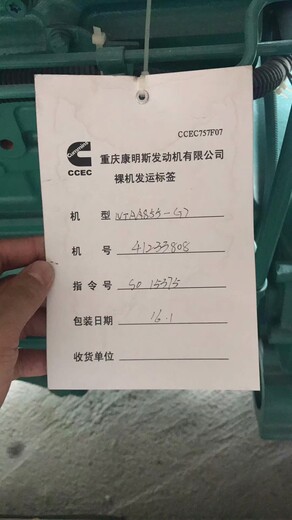 CCEC757F07
Cummins
CCEC
重庆康明斯发动机有限公司
裸机发运标签
机 型 NTAA855-G7
机 号 41233808
指令号 SO 15375
包装日期 16.1
收货单位